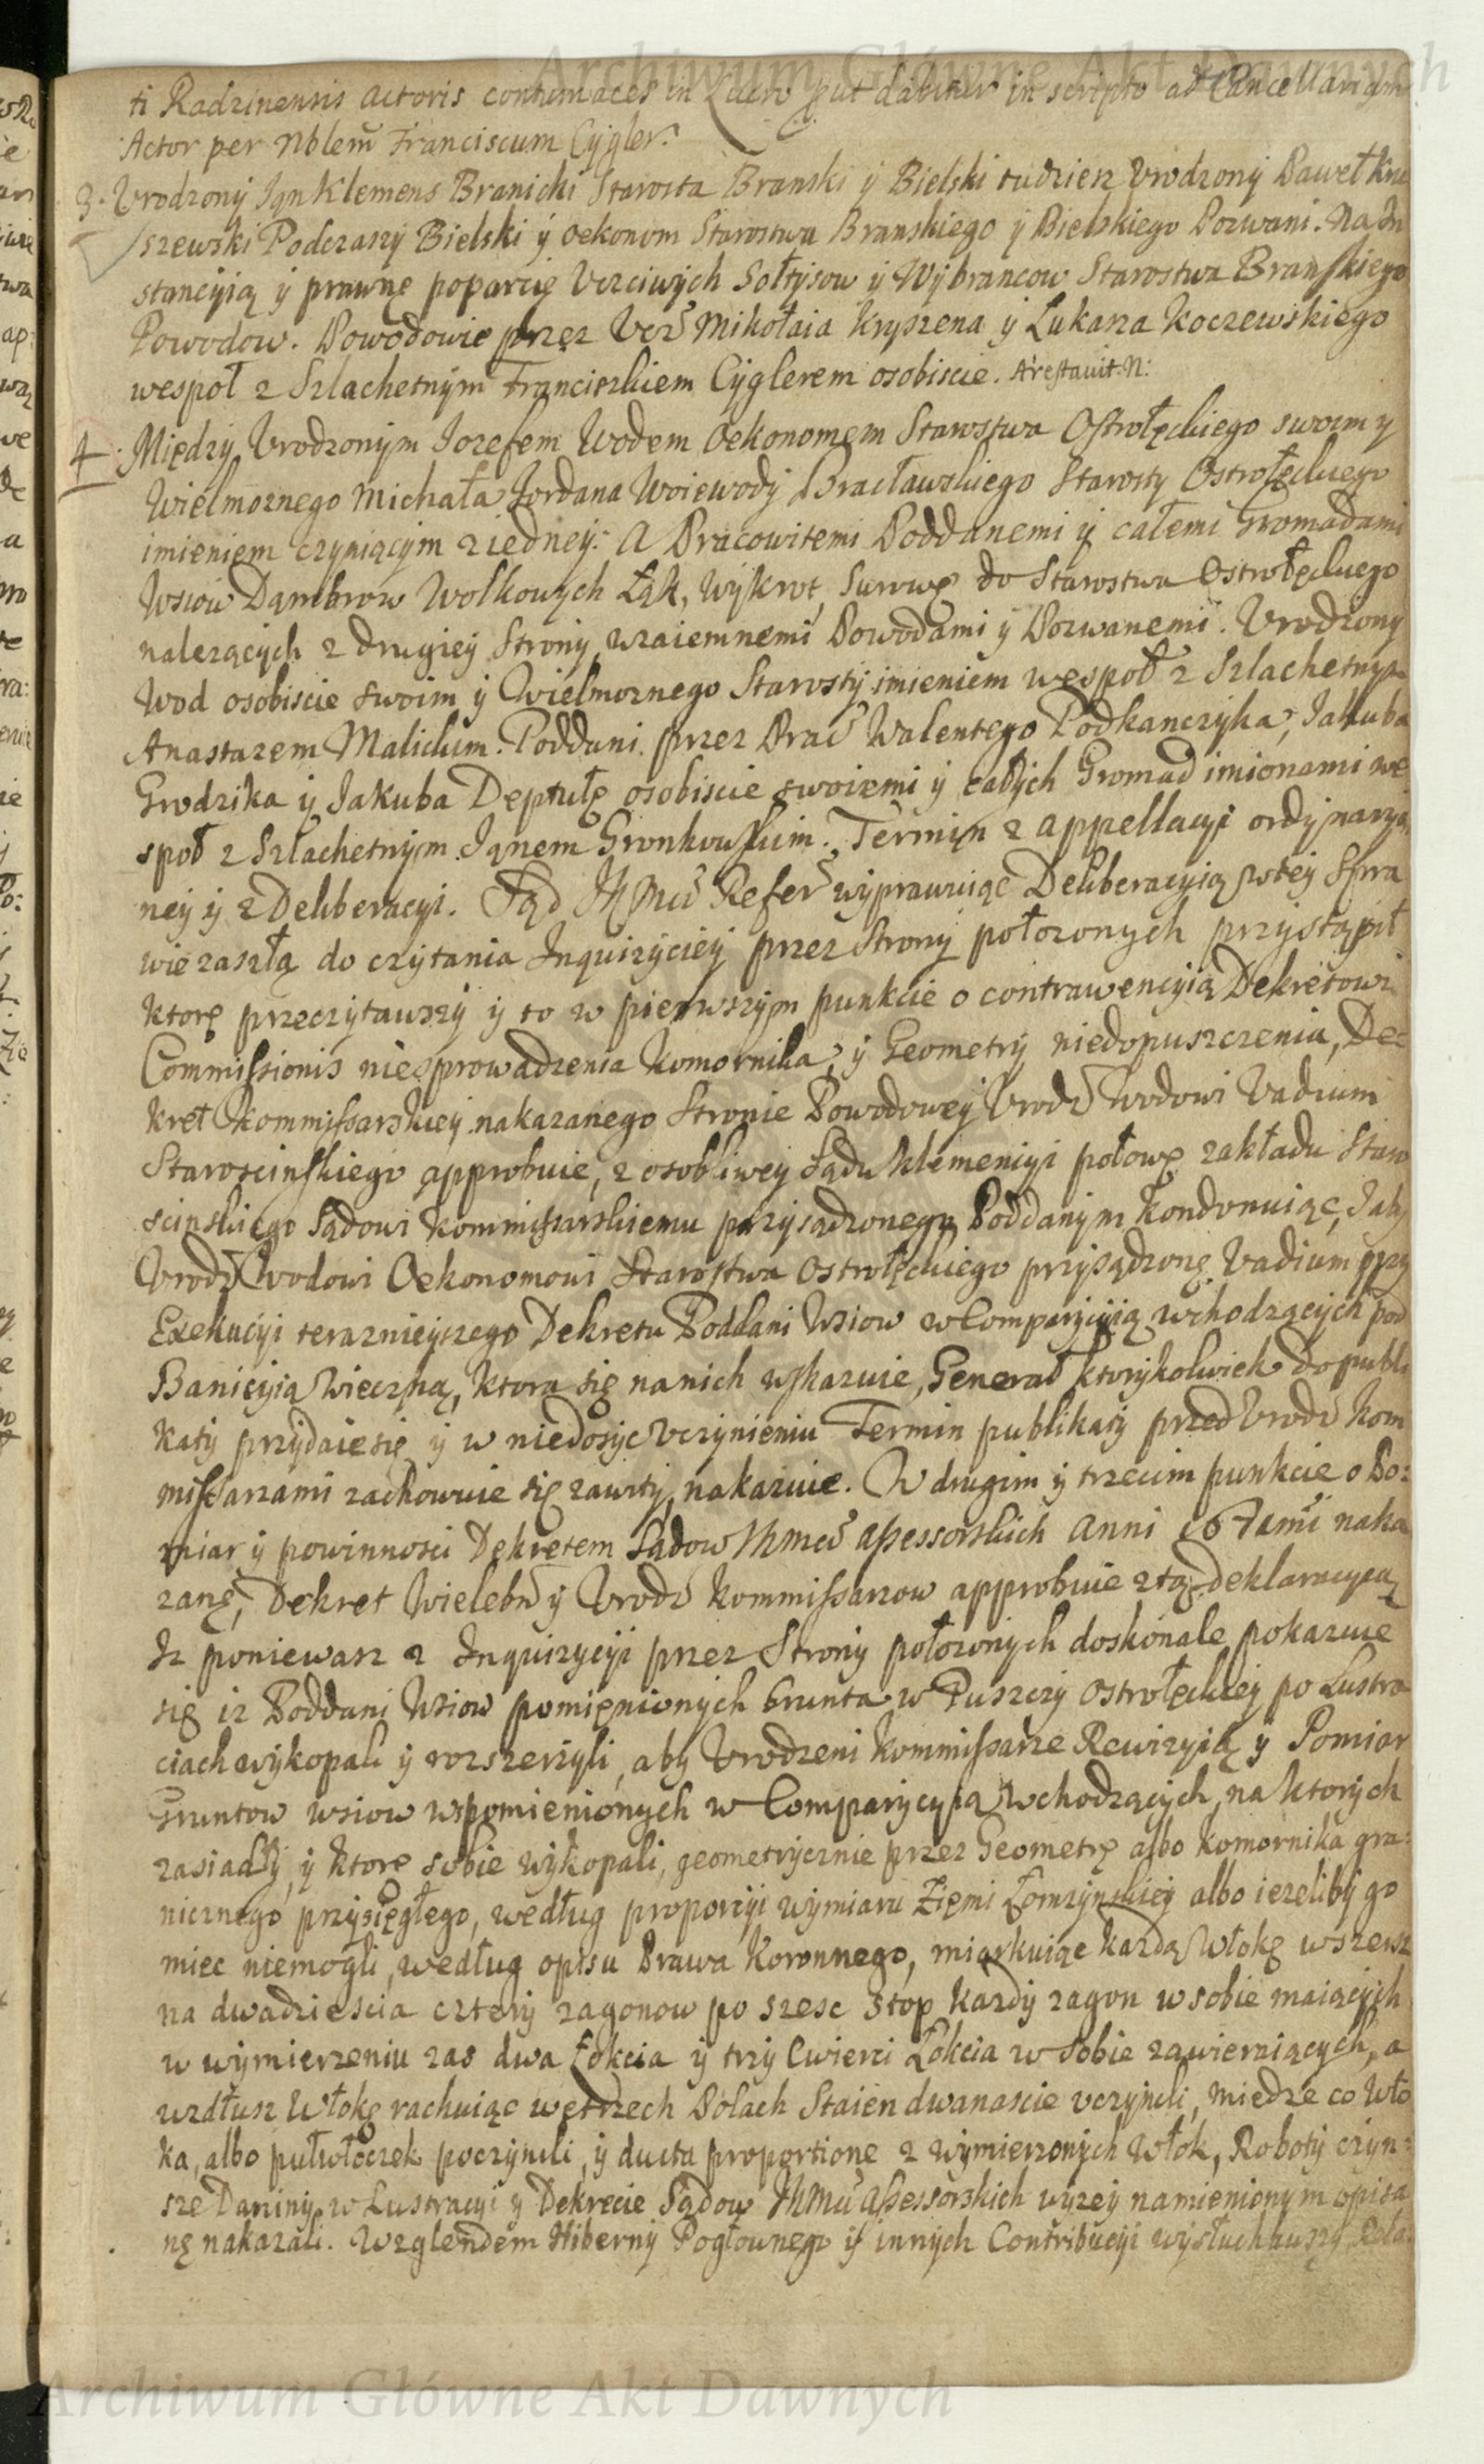 ti Radzinensis actoris contumaces in Lucro put dabitur in scripto ad Cancellariam
Actor per Nblem Franciscum Cygler.
3. Vrodzony Jan Klemens Branicki Starosta Branski y Bielski tudziesz Vrodzony Paweł Kru
szewski Podczaszy Bielski y Oekonom Starostwa Branskiego y Bielskiego Pozwani. Na In
stancyią y prawne poparcie Vczciwych Sołtysow y Wybrancow Starostwa Branskiego
Powodow. Powodowie przez Vcz Mikołaia Kryszena y Łukasza Koczewskiego
wespoł z Szlachetnym Franciszkiem Cyglerem osobiscie. Arestavit N:
4. Między Vrodzonym Iozefem Wodem Oekonomem Starostwa Ostrołęckiego swoim y
Wielmoznego Michała Jordana Woiewody Bracławskiego Starosty Ostrołęckiego
imieniem czyniącym z iedney: A Pracowitemi Poddanemi y całemi Gromadami
Wsiow Dąmbrow Wolkowych Łąk, Wykrot, Surowe do Starostwa Ostrołęckiego
nalezących z drugiey Strony wzaiemnemi Powodami y Pozwanemi. Vrodzony
Wod osobiscie swoim y Wielmoznego Starosty imieniem wespoł z Szlachetnym
Anastazem Malickim. Poddani przez Prac Walentego Podkanczyka, Jakuba
Grodzika y Jakuba Deptułę osobiscie swoiemi y całych Gromad imionami we
społ z Szlachetnym Janem Gronkowskim. Termin z appellacyi ordynaryi
ney y z Deliberacyi. Sąd JKMci Refer wyprawuiąc Deliberacyią w tey Spra
wie zaszłą do czytania Inquizyciey przez Strony połozonych przystąpił
ktore przeczytawszy y to w pierwszym punkcie o contrawencyią Dekretowi
Commissionis niesprowadzenia Komornika, y Geometry niedopuszczenia, De=
kret Kommissarskiey nakazanego Stronie Powodowey Vrodz Wodowi Vadium
Staroscinskiego approbuie, z osobliwey Sądu Klemencyi połowę zakładu Staro
scinskiego Sądowi Kommissarskiemu przysądzonego Poddanym kondonuiąc, Jaky
Vrodz Wodowi Oekonomowi Starostwa Ostrołęckiego przysądzone Vadium przy
Exekucyi teraznieyszego Dekretu Poddani Wsiow w Comparycyią wchodzących pod
Banicyią wieczną, ktora się na nich wskazuie, Generał ktorykolwiek do publi
katy przydaie się y w niedosyc vczynieniu Termin publikaty przed Vrodz Kom
missarzami zachowuie się zawity, nakazuie. W drugim y trzecim punkcie o Po:
miar y powinnosci Dekretem Sądow JKMci Assessorskich Anni nakа
zane, Dekret Wielebn y Vrodz Kommissarzow approbuie z tą deklaracyią
Iz poniewasz z Inquizycyi przez Strony połozonych doskonale pokazuie
się iz Poddani Wsiow pomienionych Grunta w Puszczy Ostrołęckiey po Lustra
ciach wykopali y rozszerzyli, aby Vrodzeni Kommissarze Rewizyią y Pomiar
Gruntow wsiow wspomienionych w Comparycyią wchodzących, na ktorych
zasiadły, y ktore sobie wykopali, geometrycznie przez Geometrę albo Komornika gra:
nicznego przysięgłego, według proporcyi wymiaru Ziemi Łomzynskiey albo iezeliby go
miec niemogli, według opisu Prawa Koronnego, miarkuiąc kazdą Włokę wszersz
na dwadziescia cztery zagonow po szesc stop kazdy zagon w sobie maiących
w wymierzeniu zas dwa Łokcia y trzy Cwierci Łokcia w sobie zawieraiących, a
wzdłusz Włokę rachuiąc we trzech Polach Staien dwanascie vczynili, miedze co Wło
ka, albo pułwłoczek poczynili, y ducta proportione z wymierzonych Włok, Roboty czyn:
sze Daniny w Lustracyi y Dekrecie Sądow JKMci Assessorskich wyzey namienionym opisa
ne nakazali. Wzglendem Hiberny Pogłownego y innych Contribucyi wysłuchawszy Rela
Archiwum Główne Akt Dawnych
Archiwum Główne Akt Dawnych